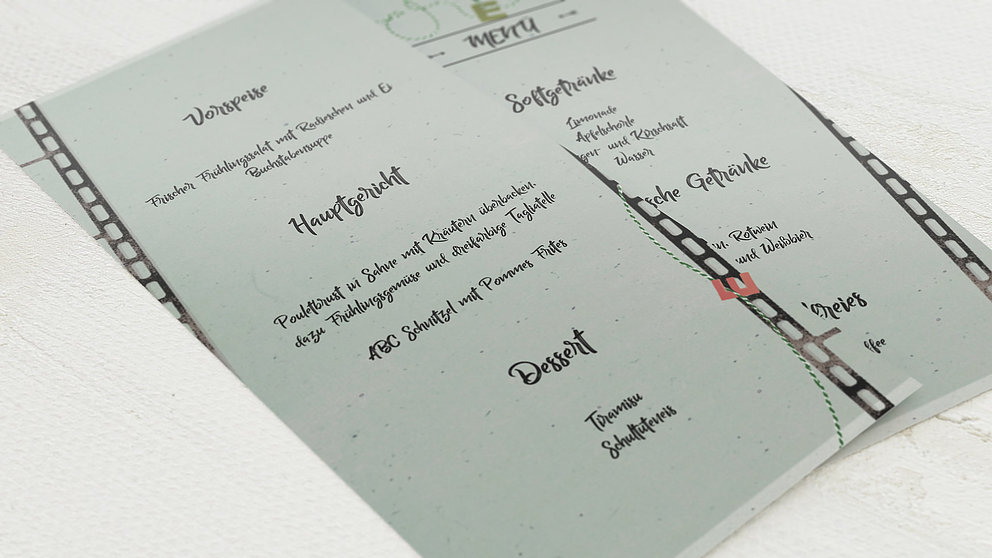 Vorspeise
Frischer Frühlingssalat mit Radieschen und Ei
Buchstabensuppe
Hauptgericht
Pouletbrust in Sahne mit Kräutern überbacken,
dazu Frühlingsgemüse und dreifarbige Tagliatelle
ABC Schnitzel mit Pommes Frites
Dessert
Tiramisu
Schultüteneis
E
MENU
Softgetränke
Limonade
Apfelschorle
und Kirschsaft
Wasser
sche Getränke
Rotwein
und Weißbier